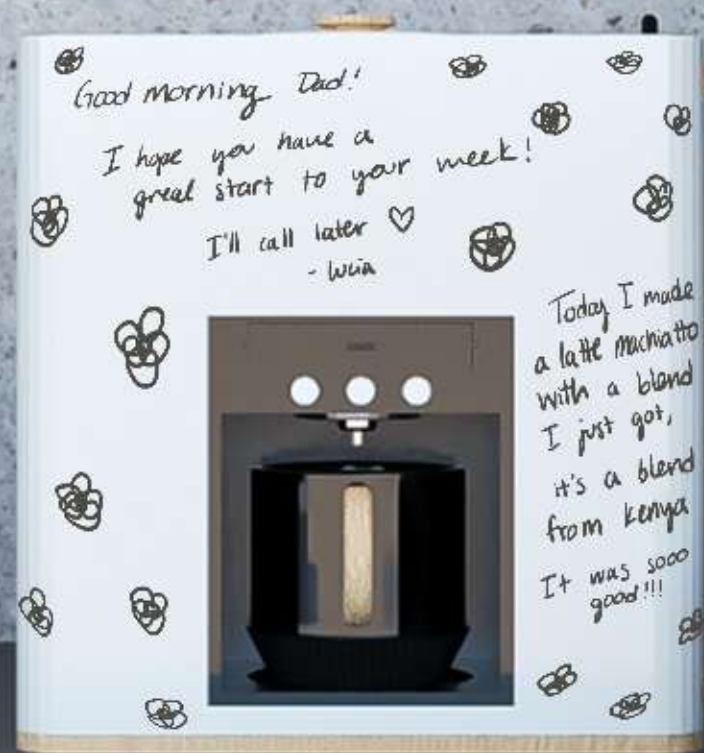 Good morning Dad!
I hope you have a
great start to your week!
I'll call later ♡
- Lucia
Today I made
a latte machiatto
with a blend
I just got,
it's a blend
from Kenya
It was sooo
good!!!